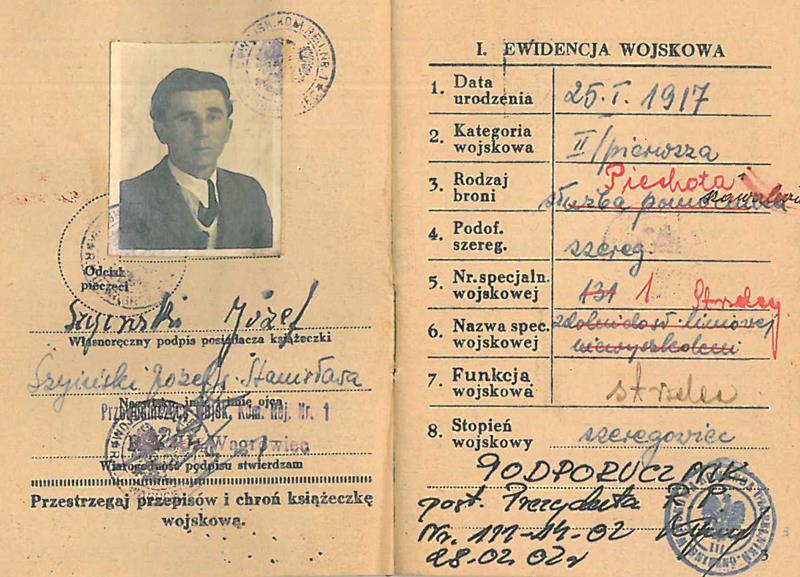 Odcisk
pieczęci
Szyiński Józef
Własnoręczny podpis posiadacza książeczki
Szyiński Józef s. Stanisława
Nazwisko, imię i imię ojca
Kom. Rej. Nr. 1
Wągrowiec
Wiarogodność podpisu stwierdzam
Przestrzegaj przepisów i chroń książeczkę
wojskową.
I. EWIDENCJA WOJSKOWA
1. Data urodzenia 25. I. 1917
2. Kategoria wojskowa II/pierwsza
Piechota
3. Rodzaj broni służba pomocnicza
4. Podof. szereg. szereg.
5. Nr. specjaln. wojskowej 131 1. Strzelcy
6. Nazwa spec. wojskowej zdolni do sł. liniowej
niewyszkoleni
7. Funkcja wojskowa strzelec
8. Stopień wojskowy szeregowiec
PODPORUCZNIK
post. Prezydenta R.P.
Nr. 111-14-02
28.02.02r
III
3